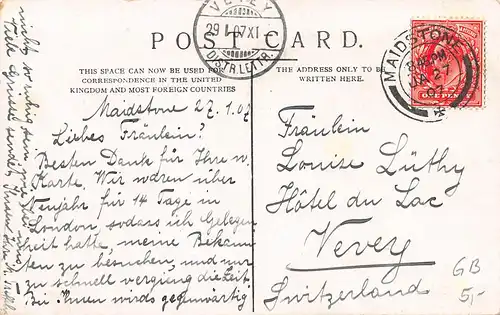 POST CARD.
VEVEY
29 I 07 XI
DISTR. LETTR.
MAIDSTONE
JA 27
07
ONE PENNY
THIS SPACE CAN NOW BE USED FOR
CORRESPONDENCE IN THE UNITED
KINGDOM AND MOST FOREIGN COUNTRIES
THE ADDRESS ONLY TO BE
WRITTEN HERE.
Maidstone 27.1.07
Liebes Fräulein!
Besten Dank für Ihre w.
Karte. Wir waren über
Neujahr für 14 Tage in
London, sodass ich Gelegen
heit hatte, meine Bekann
ten zu besuchen, und nur
zu schnell vergieng die Zeit.
Bei Ihnen wirds gegenwärtig
nichts so
Grüsse sendet Ihnen Ihre
Fräulein
Louise Lüthy
Hôtel du Lac
Vevey
Switzerland
GB
5,-